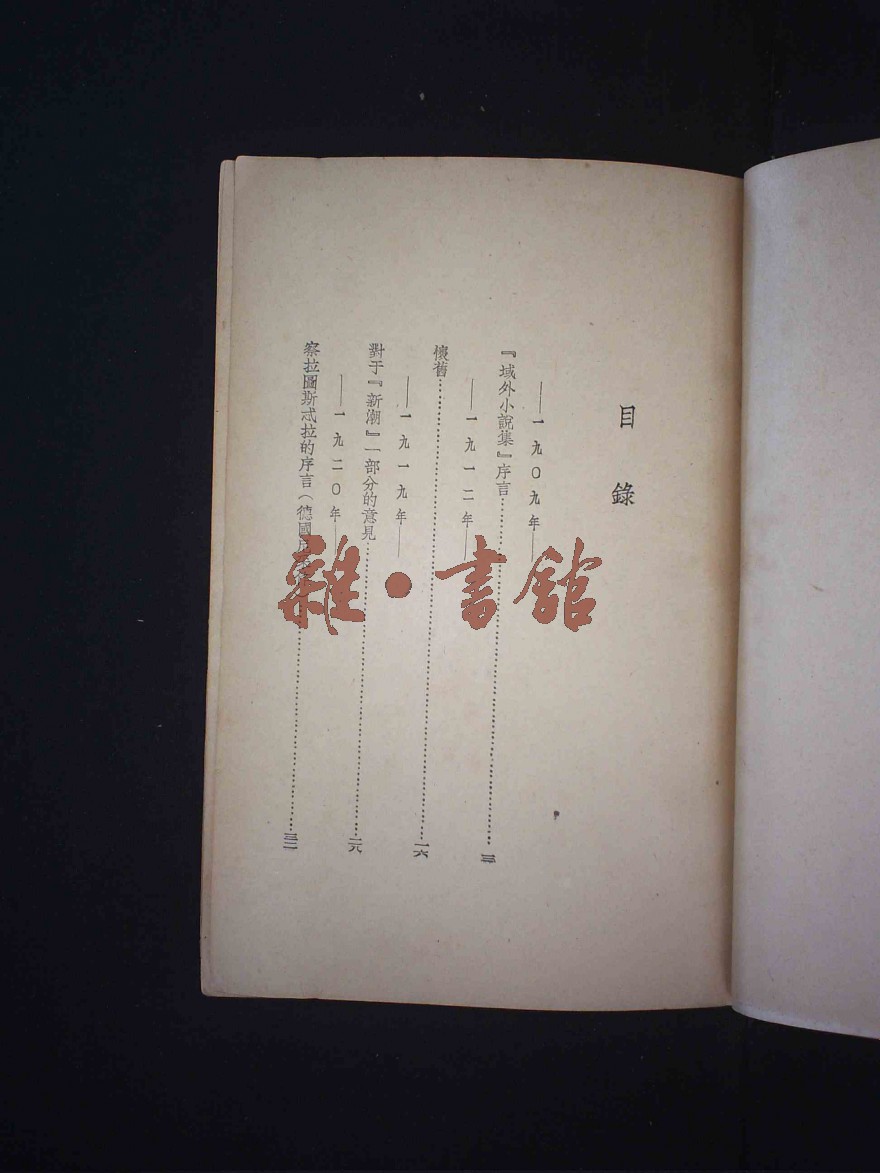 目錄
——一九〇九年——
『域外小說集』序言⋯⋯⋯⋯⋯⋯⋯⋯
——一九一二年——
懷舊⋯⋯⋯⋯⋯⋯⋯⋯一六
——一九一九年——
對于『新潮』一部分的意見⋯⋯⋯⋯⋯⋯⋯⋯二六
——一九二〇年——
察拉圖斯忒拉的序言（德國⋯⋯⋯⋯⋯⋯⋯⋯
雜·書館